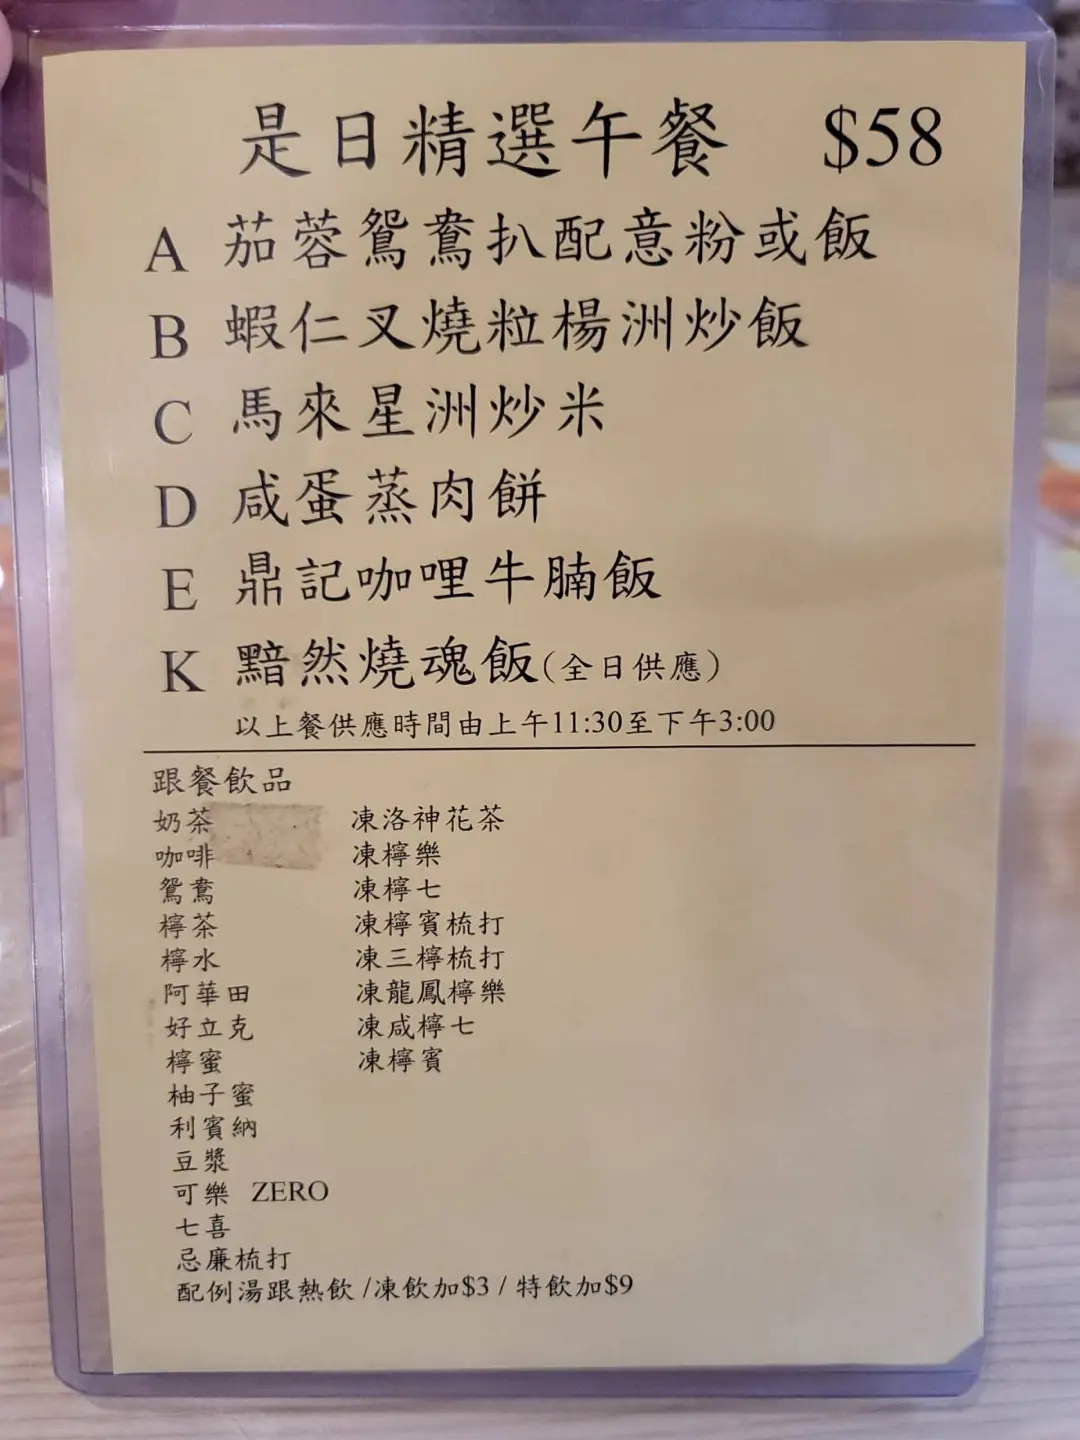 是日精選午餐 $58
A 茄蓉鴛鴦扒配意粉或飯
B 蝦仁叉燒粒楊洲炒飯
C 馬來星洲炒米
D 咸蛋蒸肉餅
E 鼎記咖哩牛腩飯
K 黯然燒魂飯(全日供應)
以上餐供應時間由上午11:30至下午3:00
跟餐飲品
奶茶 凍洛神花茶
咖啡 凍檸樂
鴛鴦 凍檸七
檸茶 凍檸賓梳打
檸水 凍三檸梳打
阿華田 凍龍鳳檸樂
好立克 凍咸檸七
檸蜜 凍檸賓
柚子蜜
利賓納
豆漿
可樂 ZERO
七喜
忌廉梳打
配例湯跟熱飲 /凍飲加$3 / 特飲加$9